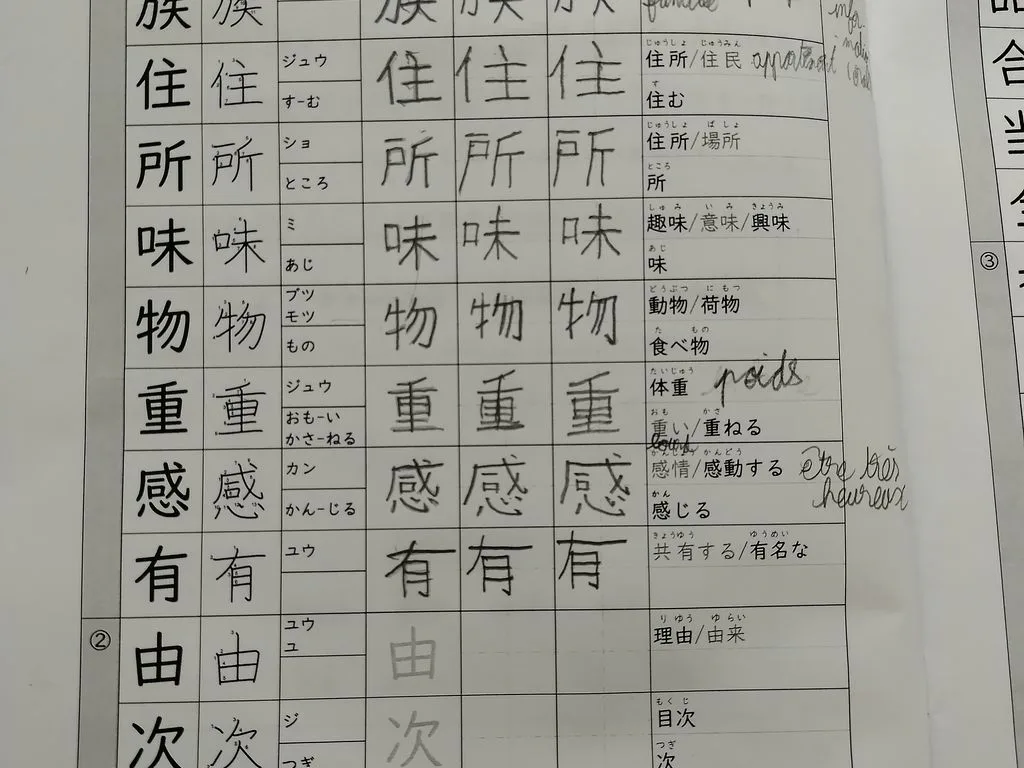 族 族
住 住 ジュウ す-む 住 住 住 じゅうしょ じゅうみん 住所/住民
す 住む
所 所 ショ ところ 所 所 所 じゅうしょ ばしょ 住所/場所
ところ 所
味 味 ミ あじ 味 味 味 しゅみ いみ きょうみ 趣味/意味/興味
あじ 味
物 物 ブツ モツ もの 物 物 物 どうぶつ にもつ 動物/荷物
た もの 食べ物
重 重 ジュウ おも-い かさ-ねる 重 重 重 たいじゅう 体重 poids
おも かさ 重い/重ねる
lourd
感 感 カン かん-じる 感 感 感 かんじょう かんどう 感情/感動する être très heureux
かん 感じる
有 有 ユウ 有 有 有 きょうゆう ゆうめい 共有する/有名な
② 由 由 ユウ ユ 由 りゆう ゆらい 理由/由来
次 次 ジ つぎ 次 もくじ 目次
つぎ 次
合
③